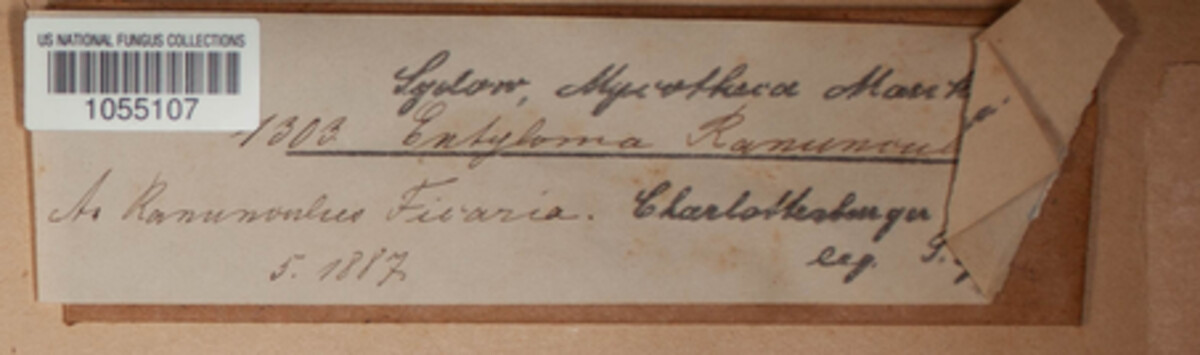 US NATIONAL FUNGUS COLLECTIONS
1055107
Sydow, Mycotheca March
1303 Entyloma Ranuncul
A. Ranunculus Ficaria. Charlottenburger
5. 1887 leg.